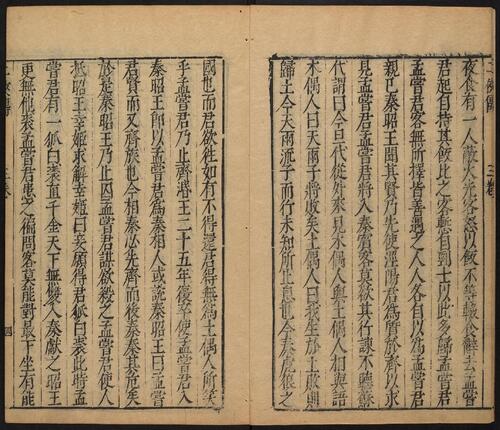 夜食有一人蔽火光客怒以飯不等輟食辭去孟嘗
君起自持其飯比之客慙自剄士以此多歸孟嘗君
孟嘗君客無所擇皆善遇之人人各自以爲孟嘗君
親己秦昭王聞其賢乃先使涇陽君爲質於齊以求
見孟嘗君孟嘗君將入秦賓客莫欲其行諫不聽蘇
代謂曰今旦代從外來見木偶人與土偶人相與語
木偶人曰天雨子將敗矣土偶人曰我生於土敗則
歸土今天雨流子而行未知所止息也今秦虎狼之
國也而君欲往如有不得還君得無爲土偶人所笑
乎孟嘗君乃止齊湣王二十五年復卒使孟嘗君入
秦昭王即以孟嘗君爲秦相人或說秦昭王曰孟嘗
君賢而又齊族也今相秦必先齊而後秦秦其危矣
於是秦昭王乃止囚孟嘗君謀欲殺之孟嘗君使人
抵昭王幸姬求解幸姬曰妾願得君狐白裘此時孟
嘗君有一狐白裘直千金天下無雙入秦獻之昭王
更無他裘孟嘗君患之徧問客莫能對最下坐有能
三卷
四